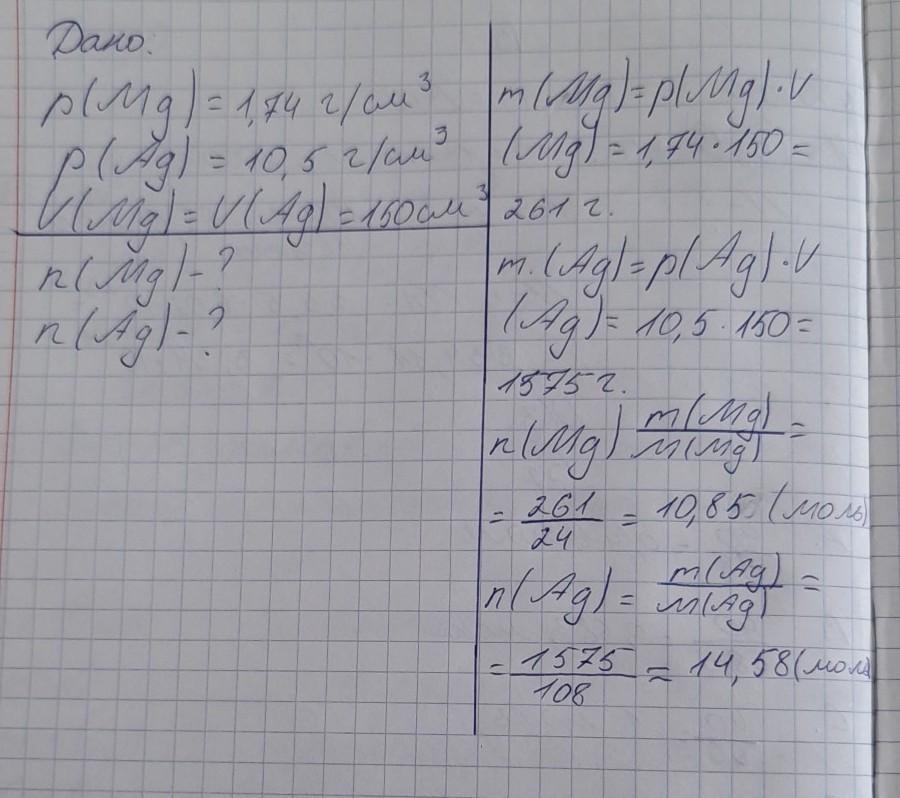 Дано:
p(Mg) = 1,74 г/см³
p(Ag) = 10,5 г/см³
V(Mg) = V(Ag) = 150см³
n(Mg) - ?
n(Ag) - ?
m(Mg) = p(Mg) · V
(Mg) = 1,74 · 150 =
261 г.
m.(Ag) = p(Ag) · V
(Ag) = 10,5 · 150 =
1575 г.
n(Mg) m(Mg)/M(Mg) =
= 261/24 = 10,85 (моль)
n(Ag) = m(Ag)/M(Ag) =
= 1575/108 = 14,58 (моль